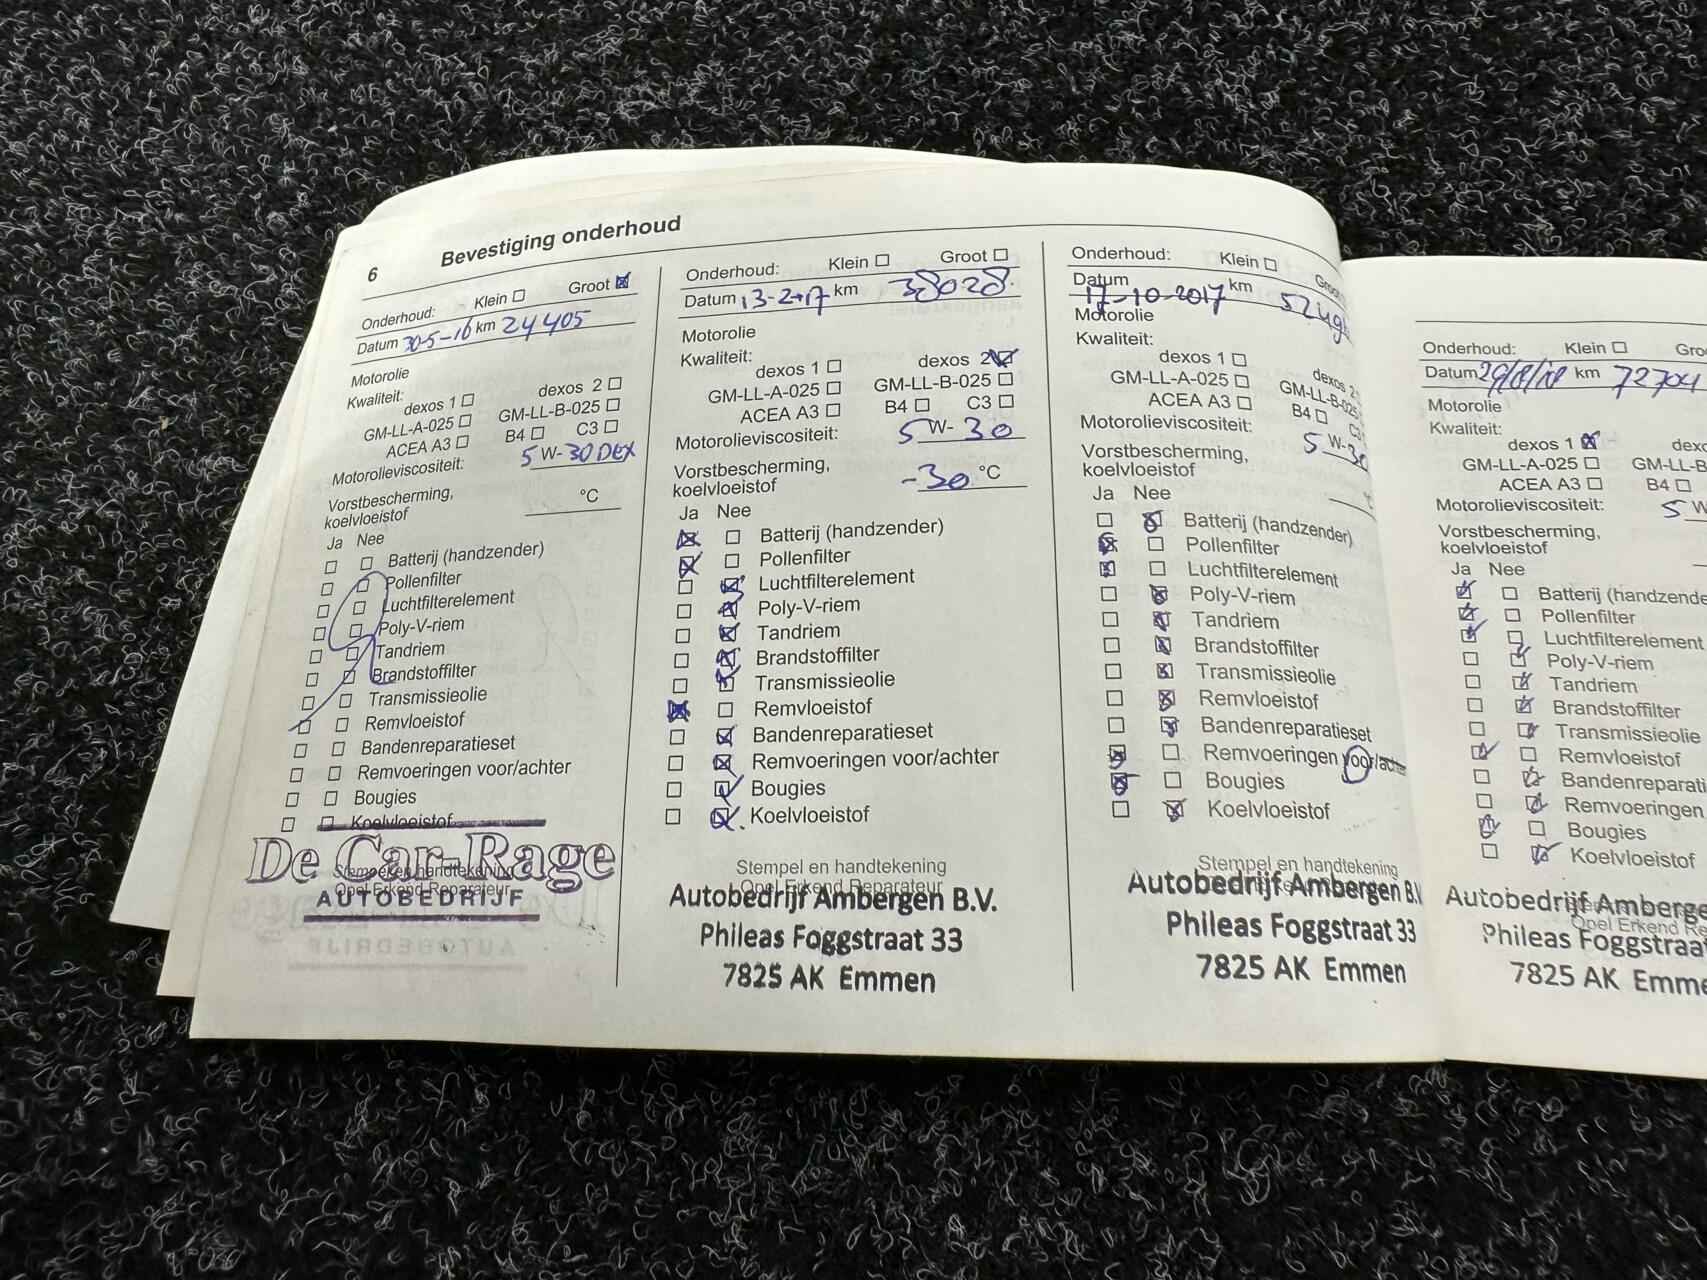 6 Bevestiging onderhoud
Onderhoud: Klein Groot
Datum 30-5-16 km 24405
Motorolie
Kwaliteit:
dexos 1 dexos 2
GM-LL-A-025 GM-LL-B-025
ACEA A3 B4 C3
Motorolieviscositeit: 5 W- 30 DEX
Vorstbescherming,
koelvloeistof °C
Ja Nee
Batterij (handzender)
Pollenfilter
Luchtfilterelement
Poly-V-riem
Tandriem
Brandstoffilter
Transmissieolie
Remvloeistof
Bandenreparatieset
Remvoeringen voor/achter
Bougies
Koelvloeistof
Stempel en handtekening
Opel Erkend Reparateur
De Car-Rage
AUTOBEDRIJF
Onderhoud: Klein Groot
Datum 13-2-17 km 38028
Motorolie
Kwaliteit:
dexos 1 dexos 2
GM-LL-A-025 GM-LL-B-025
ACEA A3 B4 C3
Motorolieviscositeit: 5 W- 30
Vorstbescherming,
koelvloeistof -30 °C
Ja Nee
Batterij (handzender)
Pollenfilter
Luchtfilterelement
Poly-V-riem
Tandriem
Brandstoffilter
Transmissieolie
Remvloeistof
Bandenreparatieset
Remvoeringen voor/achter
Bougies
Koelvloeistof
Stempel en handtekening
Opel Erkend Reparateur
Autobedrijf Ambergen B.V.
Phileas Foggstraat 33
7825 AK Emmen
Onderhoud: Klein Groot
Datum 17-10-2017 km
Motorolie
Kwaliteit:
dexos 1 dexos 2
GM-LL-A-025 GM-LL-B-025
ACEA A3 B4 C3
Motorolieviscositeit: 5 W-30
Vorstbescherming,
koelvloeistof
Ja Nee
Batterij (handzender)
Pollenfilter
Luchtfilterelement
Poly-V-riem
Tandriem
Brandstoffilter
Transmissieolie
Remvloeistof
Bandenreparatieset
Remvoeringen voor/achter
Bougies
Koelvloeistof
Stempel en handtekening
Autobedrijf Ambergen B.V
Phileas Foggstraat 33
7825 AK Emmen
Onderhoud: Klein Gro
Datum km 72704
Motorolie
Kwaliteit:
dexos 1 dexo
GM-LL-A-025 GM-LL-B
ACEA A3 B4
Motorolieviscositeit: 5 W
Vorstbescherming,
koelvloeistof
Ja Nee
Batterij (handzende
Pollenfilter
Luchtfilterelement
Poly-V-riem
Tandriem
Brandstoffilter
Transmissieolie
Remvloeistof
Bandenreparati
Remvoeringen
Bougies
Koelvloeistof
Opel Erkend Re
Autobedrijf Amberge
Phileas Foggstraa
7825 AK Emme